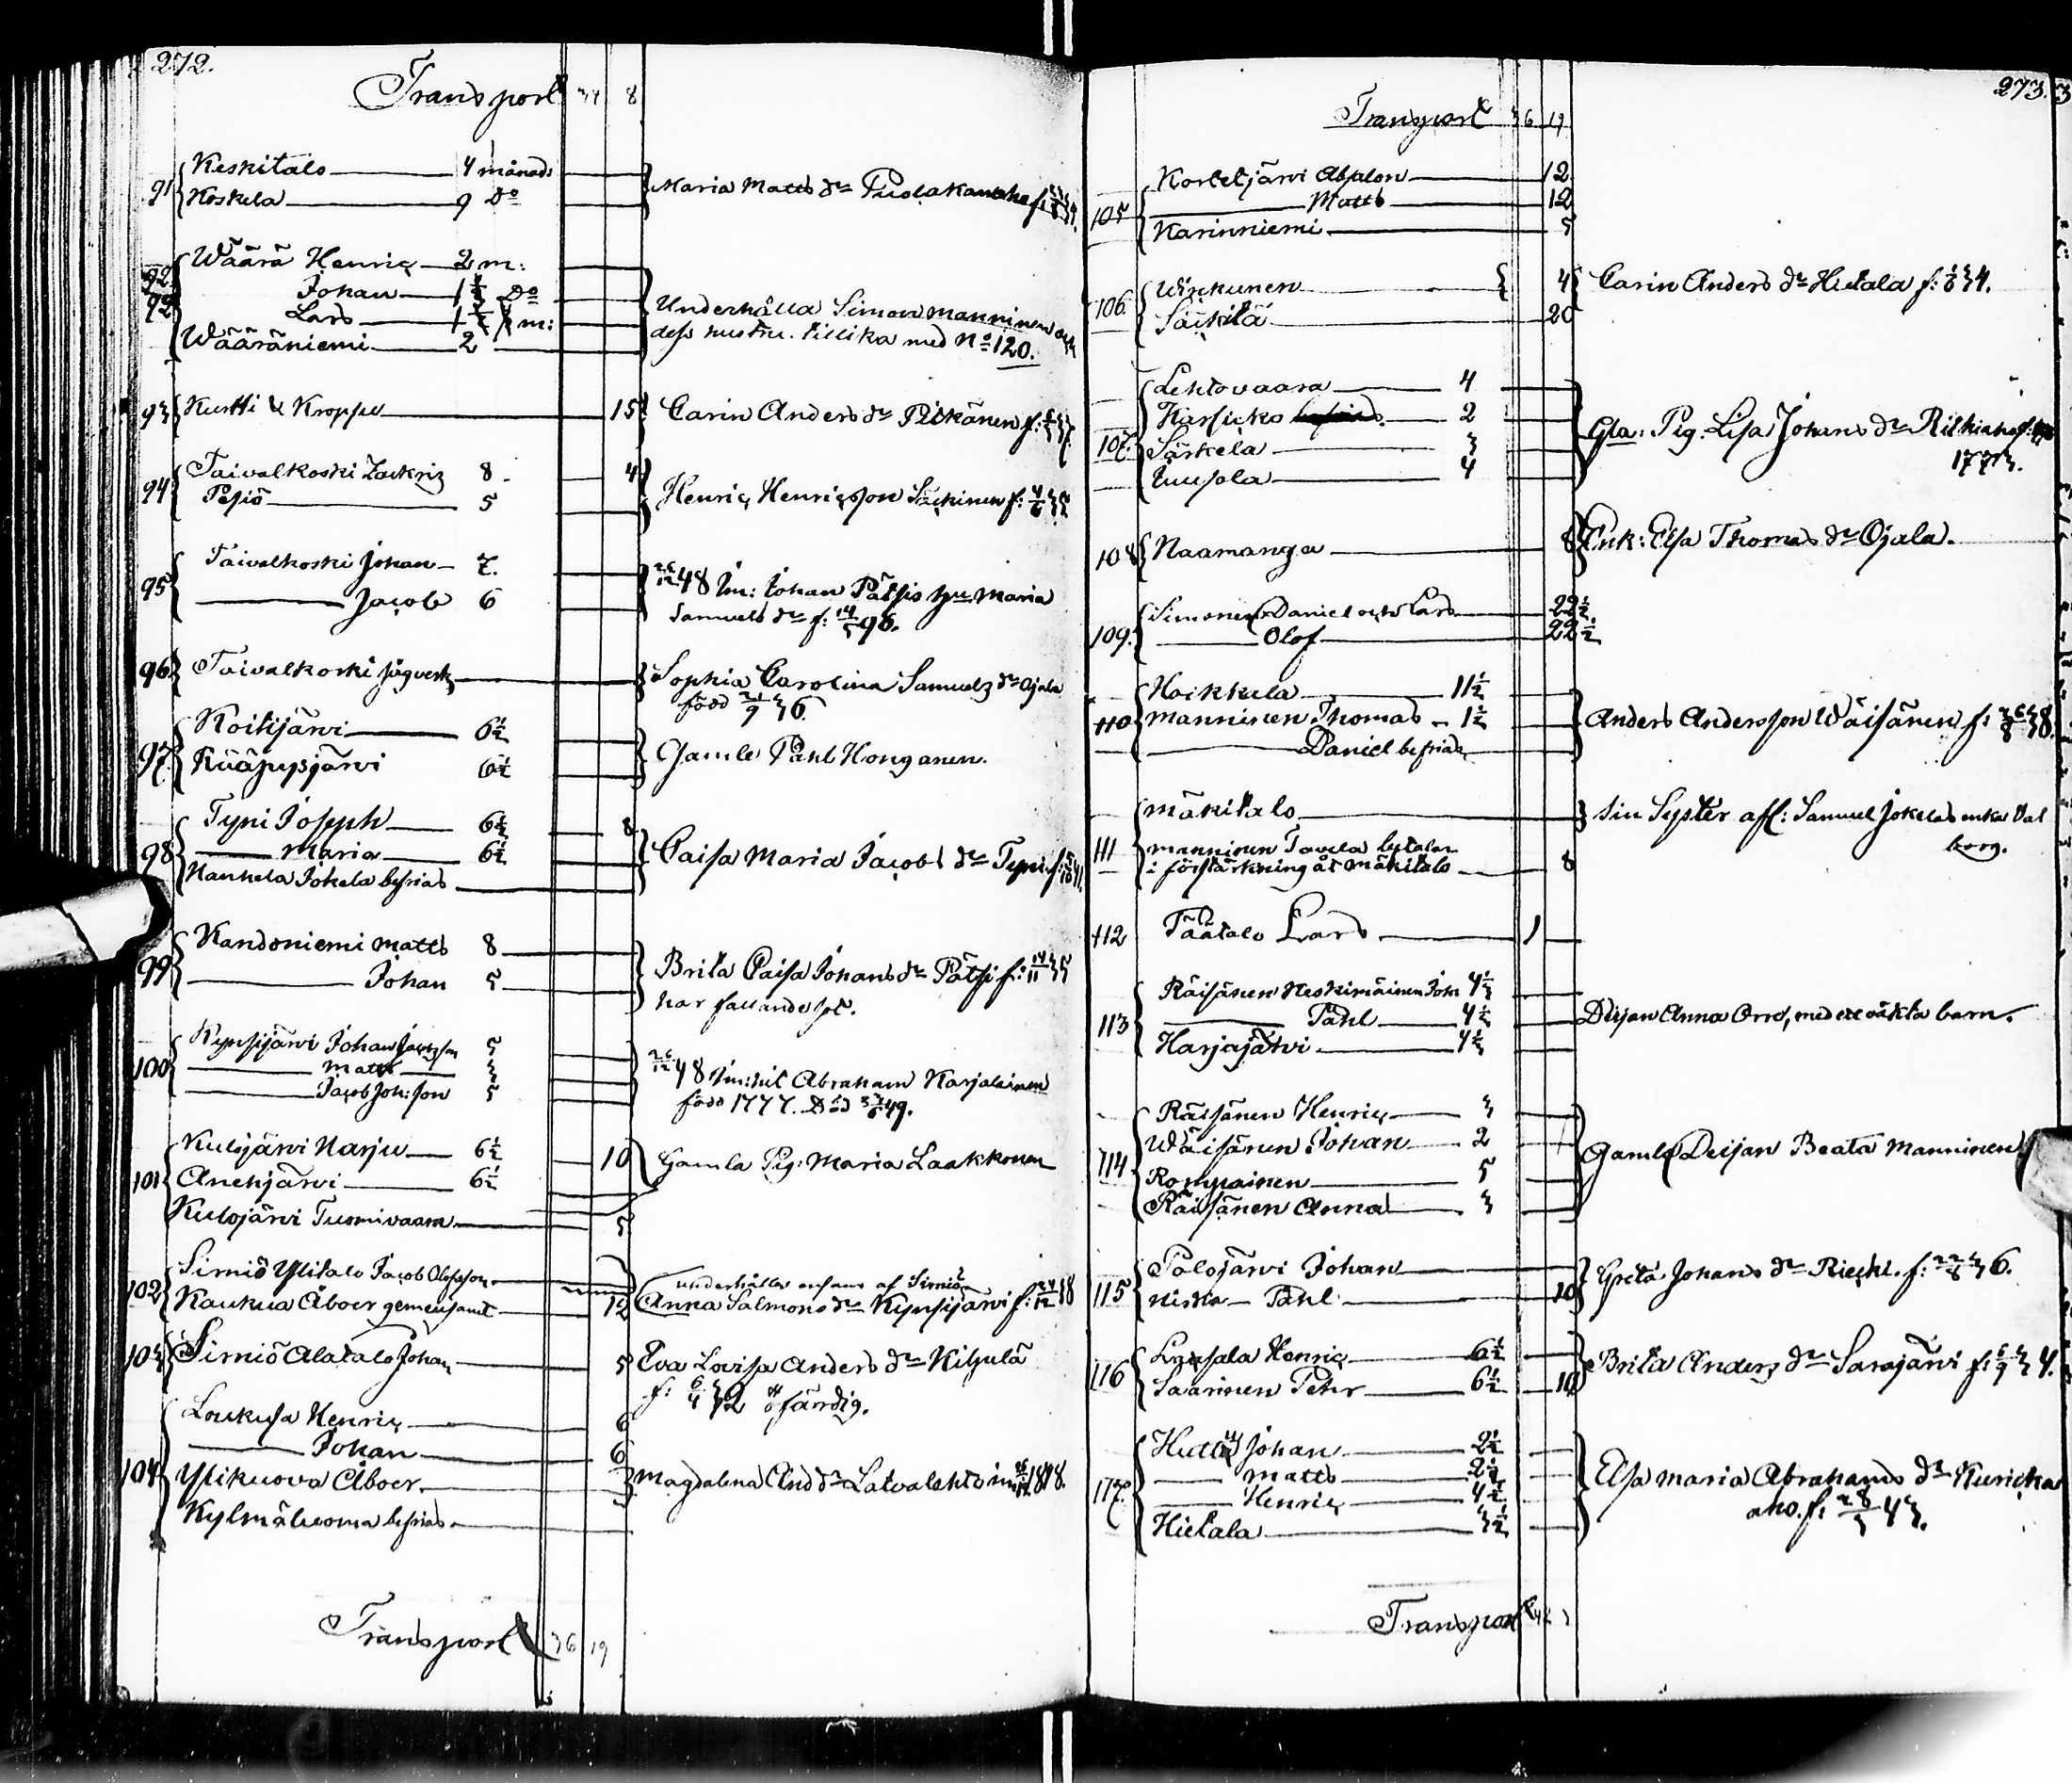 272.
Transport 34 8
91 Keskitalo 4 månad
Koskela 9 Do
Maria Matts dr
92 Wäärä Henric 2 m:
Johan 1½ Do
Lars 1½ m:
Wääräniemi 2
Underhålla Simon Manninen och
dess hustru tillika med No 120.
93 Kurtti & Kroppu 15
Carin Anders dr Pitkänen
94 Taivalkoski Zackris 8 4
Pesiö 5
Henric Henricsson Säckinen
95 Taivalkoski Johan 7
Jacob 6
48 Inh: Johan Pätsis hu Maria
Samuels dr f: 14/5 96.
96 Taivalkoski sågverk
Sophia Carolina Samuels dr Ojala
född 21/9 36.
97 Koitijärvi 6½
Kääpysjärvi 6½
Gamle Pahl Honganen.
98 Tyni Joseph 6½ 8
Maria 6½
Hankela Jokela befrias
Caisa Maria Jacobs dr Tyni
99 Kandoniemi Matts 8
Johan 5
Brita Caisa Johans dr Pätsi f: 14/11 35
har fallandesot.
100 Kynsijärvi Johan Jacobsson 5
Matts 3
Jacob Joh:son 5
48 Inhil Abraham Karjalainen
född 1777. Död 49.
101 Kulojärvi Harju 6½ 10
Anehjärvi 6½
Kulojärvi Tuomivaara 5
Gamla Pig: Maria Laakkonen
102 Sirniö Ylitalo Jacob Olofsson
Kaukua Åboer gemensamt 12
underhålles ensam af Sirniö
Anna Salmons dr Kynsijärvi
103 Sirniö Alatalo Johan 5
Eva Lovisa Anders dr Kilpulä
f: 6/4 32 ofärdig.
104 Loukusa Henric 6
Johan 6
Ylikuova Åboer 3
Kylmäluoma befrias
Magdalena And dr Latvalehto
Transport 36 19
273.
Transport 36 19
105 Kortetjärvi Absalon 12
Matts 12
Karinniemi 5
106 Winkunen 4
Säikilä 20
Carin Anders dr Hietala
107 Lehtovaara 4
Karsicko 2
Särkelä 3
Uusola 4
Gla: Pig. Lisa Johans dr
1773.
108 Naamanga 8
Enk: Elsa Thomas dr Ojala.
109 Simonen Daniel och Lars 22½
Olof 22½
110 Hoikkela 11½
Manninen Thomas 1½
Daniel befrias
Anders Andersson Wäisänen
111 Mäkitalo
Manninen Tavela betalar
i förstärkning åt Mäkitalo 8
sin Syster afl: Samuel Jokelas enka Val
borg.
112 Täätalo Lars 1
113 Räisänen Heskimäinen Joh 4½
Pahl 4½
Harjajärvi 4½
Deijan Anna Orre, med oäkta barn.
114 Räisänen Henric 3
Wäisänen Johan 2
Rompainen 5
Räisänen Anna 3
Gamla Deijan Beata Manninen
115 Palojärvi Johan
Niska Pahl 10
Greta Johans dr Riecki. f: 22/8 36.
116 Loukala Henric 6½
Saarinen Pehr 6½ 10
Brita Anders dr Sarajärvi
117 Huttu Johan 2½
Matts 2½
Henric 4½
Hietala 3½
Elsa Maria Abrahams dr Kuricka
aho. f: 28/3 43.
Transport